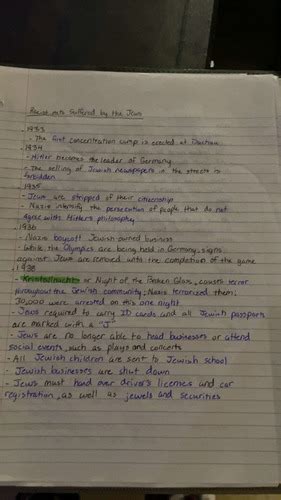 Racist acts Suffered by the Jews
. 1933
- The first concentration camp is erected at Dachau
. 1934
- Hitler becomes the leader of Germany
- The selling of Jewish newspapers in the streets is
forbidden
. 1935
- Jews are stripped of their citizenship
- Nazis intensify the persecution of people that do not
agree with Hitler's philosophy
. 1936
- Nazis boycott Jewish owned business
- While the Olympics are being held in Germany, signs
against Jews are removed until the completion of the game
. 1938
- Kristallnacht or Night of the Broken Glass, causes terror
throughout the Jewish community, Nazis terrorized them;
30,000 were arrested on this one night
- Jews required to carry ID cards and all Jewish passports
are marked with a "J"
- Jews are no longer able to head businesses or attend
social events, such as plays and concerts
- All Jewish children are sent to Jewish school
- Jewish businesses are shut down
- Jews must hand over driver's licences and car
registration, as well as jewels and securities